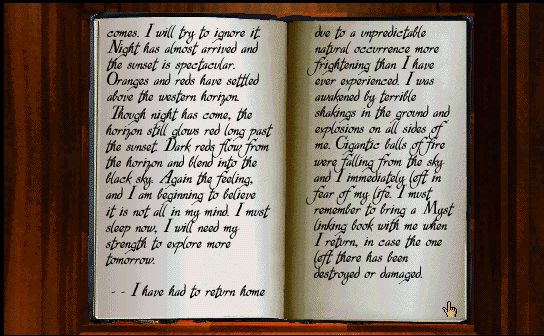 comes. I will try to ignore it.
Night has almost arrived and
the sunset is spectacular.
Oranges and reds have settled
above the western horizon.
Though night has come, the
horizon still glows red long past
the sunset. Dark reds flow from
the horizon and blend into the
black sky. Again the feeling,
and I am beginning to believe
it is not all in my mind. I must
sleep now, I will need my
strength to explore more
tomorrow.
-- I have had to return home
due to a unpredictable
natural occurrence more
frightening than I have
ever experienced. I was
awakened by terrible
shakings in the ground and
explosions on all sides of
me. Gigantic balls of fire
were falling from the sky
and I immediately left in
fear of my life. I must
remember to bring a Myst
linking book with me when
I return, in case the one
left there has been
destroyed or damaged.